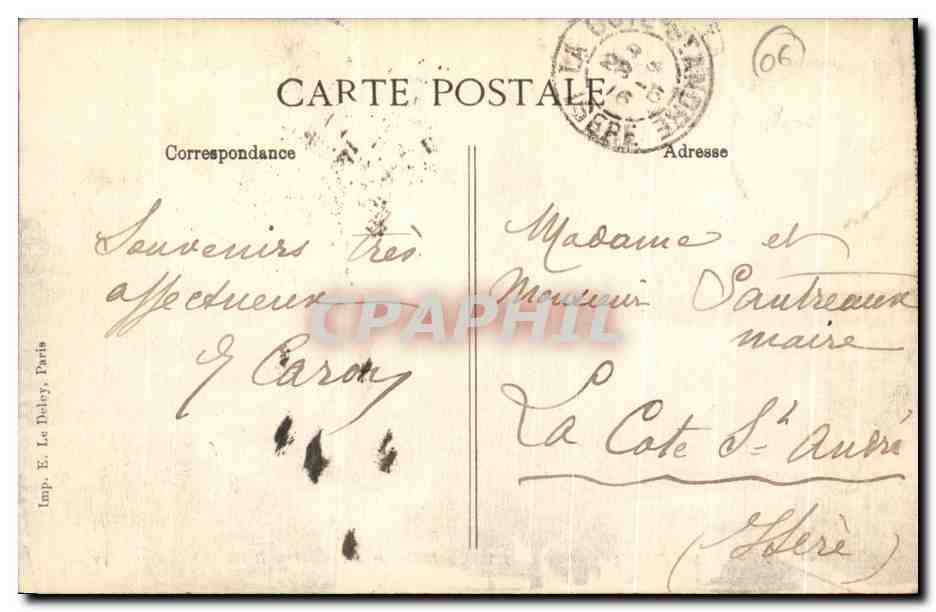 CARTE POSTALE
LA COTE ST ANDRE
ISERE
06
Correspondance
Adresse
Souvenirs très
affectueux
E Caron
Madame et
Monsieur Sautreaux
maire
La Cote St André
(Isère)
Imp. E. Le Deley, Paris
CPAPHIL